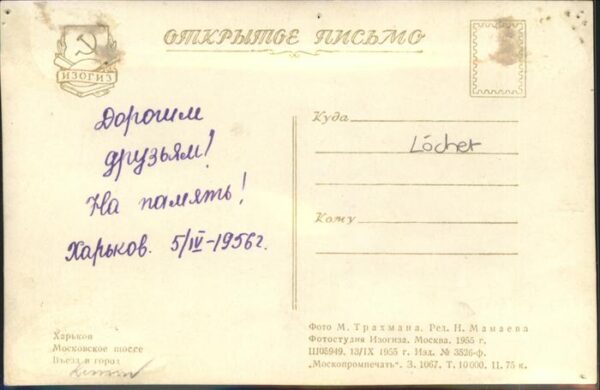 ОТКРЫТОЕ ПИСЬМО
ИЗОГИЗ
Дорогим
друзьям!
На память!
Харьков. 5/IV-1956г.
Куда
Löcher
Кому
Харьков
Московское шоссе
Въезд в город
Фото М. Трахмана. Ред. Н. Мамаева
Фотостудия Изогиза. Москва. 1955 г.
Ш05949. 13/IX 1955 г. Изд. № 3526-ф.
„Москопромпечать". З. 1067. Т. 10 000. Ц. 75 к.